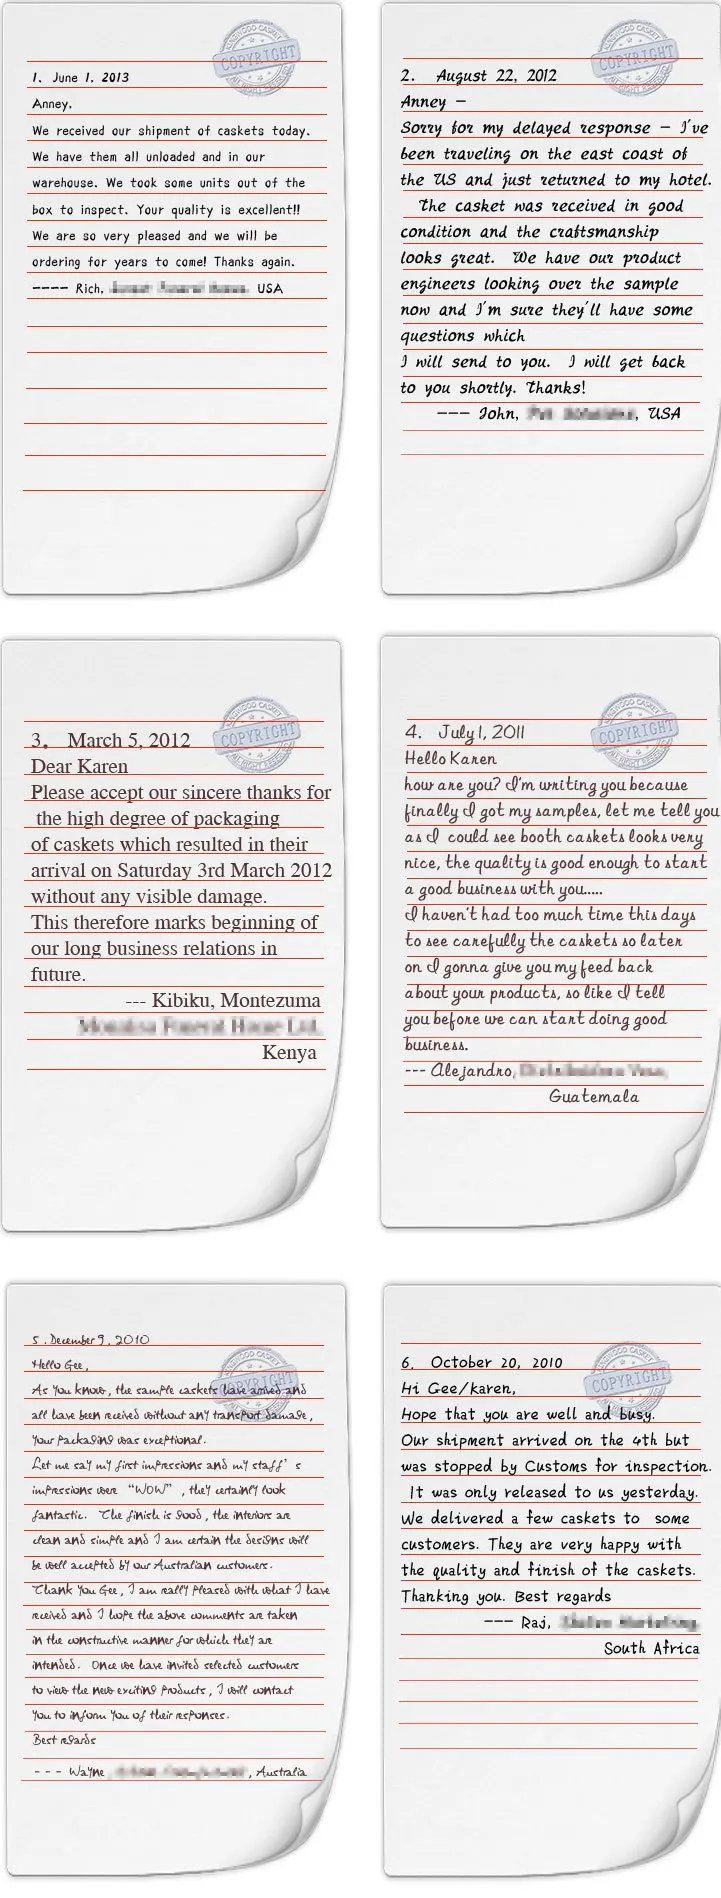 1. June 1, 2013
Anney,
We received our shipment of caskets today.
We have them all unloaded and in our
warehouse. We took some units out of the
box to inspect. Your quality is excellent!!
We are so very pleased and we will be
ordering for years to come! Thanks again.
---- Rich, USA
COPYRIGHT
2. August 22, 2012
Anney –
Sorry for my delayed response – I've
been traveling on the east coast of
the US and just returned to my hotel.
The casket was received in good
condition and the craftsmanship
looks great. We have our product
engineers looking over the sample
now and I'm sure they'll have some
questions which
I will send to you. I will get back
to you shortly. Thanks!
--- John, , USA
COPYRIGHT
3. March 5, 2012
Dear Karen
Please accept our sincere thanks for
the high degree of packaging
of caskets which resulted in their
arrival on Saturday 3rd March 2012
without any visible damage.
This therefore marks beginning of
our long business relations in
future.
--- Kibiku, Montezuma
Kenya
COPYRIGHT
4. July 1, 2011
Hello Karen
how are you? I'm writing you because
finally I got my samples, let me tell you
as I could see booth caskets looks very
nice, the quality is good enough to start
a good business with you.....
I haven't had too much time this days
to see carefully the caskets so later
on I gonna give you my feed back
about your products, so like I tell
you before we can start doing good
business.
--- Alejandro,
Guatemala
COPYRIGHT
5. December 9, 2010
Hello Gee,
As you know, the sample caskets have arrived and
all have been received without any transport damage,
your packaging was exceptional.
Let me say my first impressions and my staff's
impressions were “WOW”, they certainly look
fantastic. The finish is good, the interiors are
clean and simple and I am certain the designs will
be well accepted by our Australian customers.
Thank you Gee, I am really pleased with what I have
received and I hope the above comments are taken
in the constructive manner for which they are
intended. Once we have invited selected customers
to view the new exciting products, I will contact
you to inform you of their responses.
Best regards
--- Wayne, , Australia
COPYRIGHT
6. October 20, 2010
Hi Gee/karen,
Hope that you are well and busy.
Our shipment arrived on the 4th but
was stopped by Customs for inspection.
It was only released to us yesterday.
We delivered a few caskets to some
customers. They are very happy with
the quality and finish of the caskets.
Thanking you. Best regards
--- Raj,
South Africa
COPYRIGHT